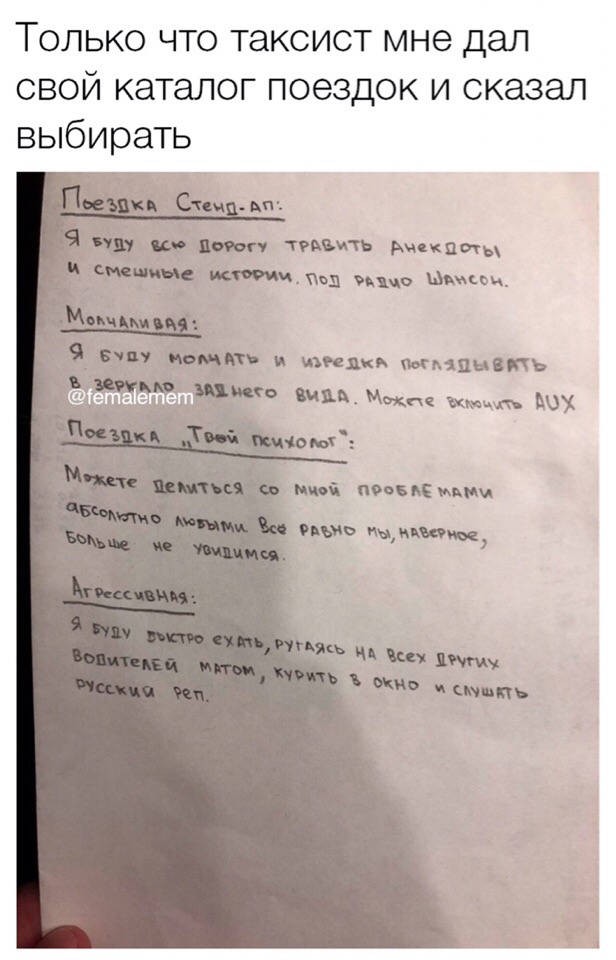 Только что таксист мне дал
свой каталог поездок и сказал
выбирать
Поездка Стенд-ап:
Я буду всю дорогу травить анекдоты
и смешные истории. Под радио Шансон.
Молчаливая:
Я буду молчать и изредка поглядывать
в зеркало заднего вида. Можете включить AUX
@femalemem
Поездка „Твой психолог":
Можете делиться со мной проблемами
абсолютно любыми. Все равно мы, наверное,
больше не увидимся.
Агрессивная:
Я буду быстро ехать, ругаясь на всех других
водителей матом, курить в окно и слушать
русский реп.